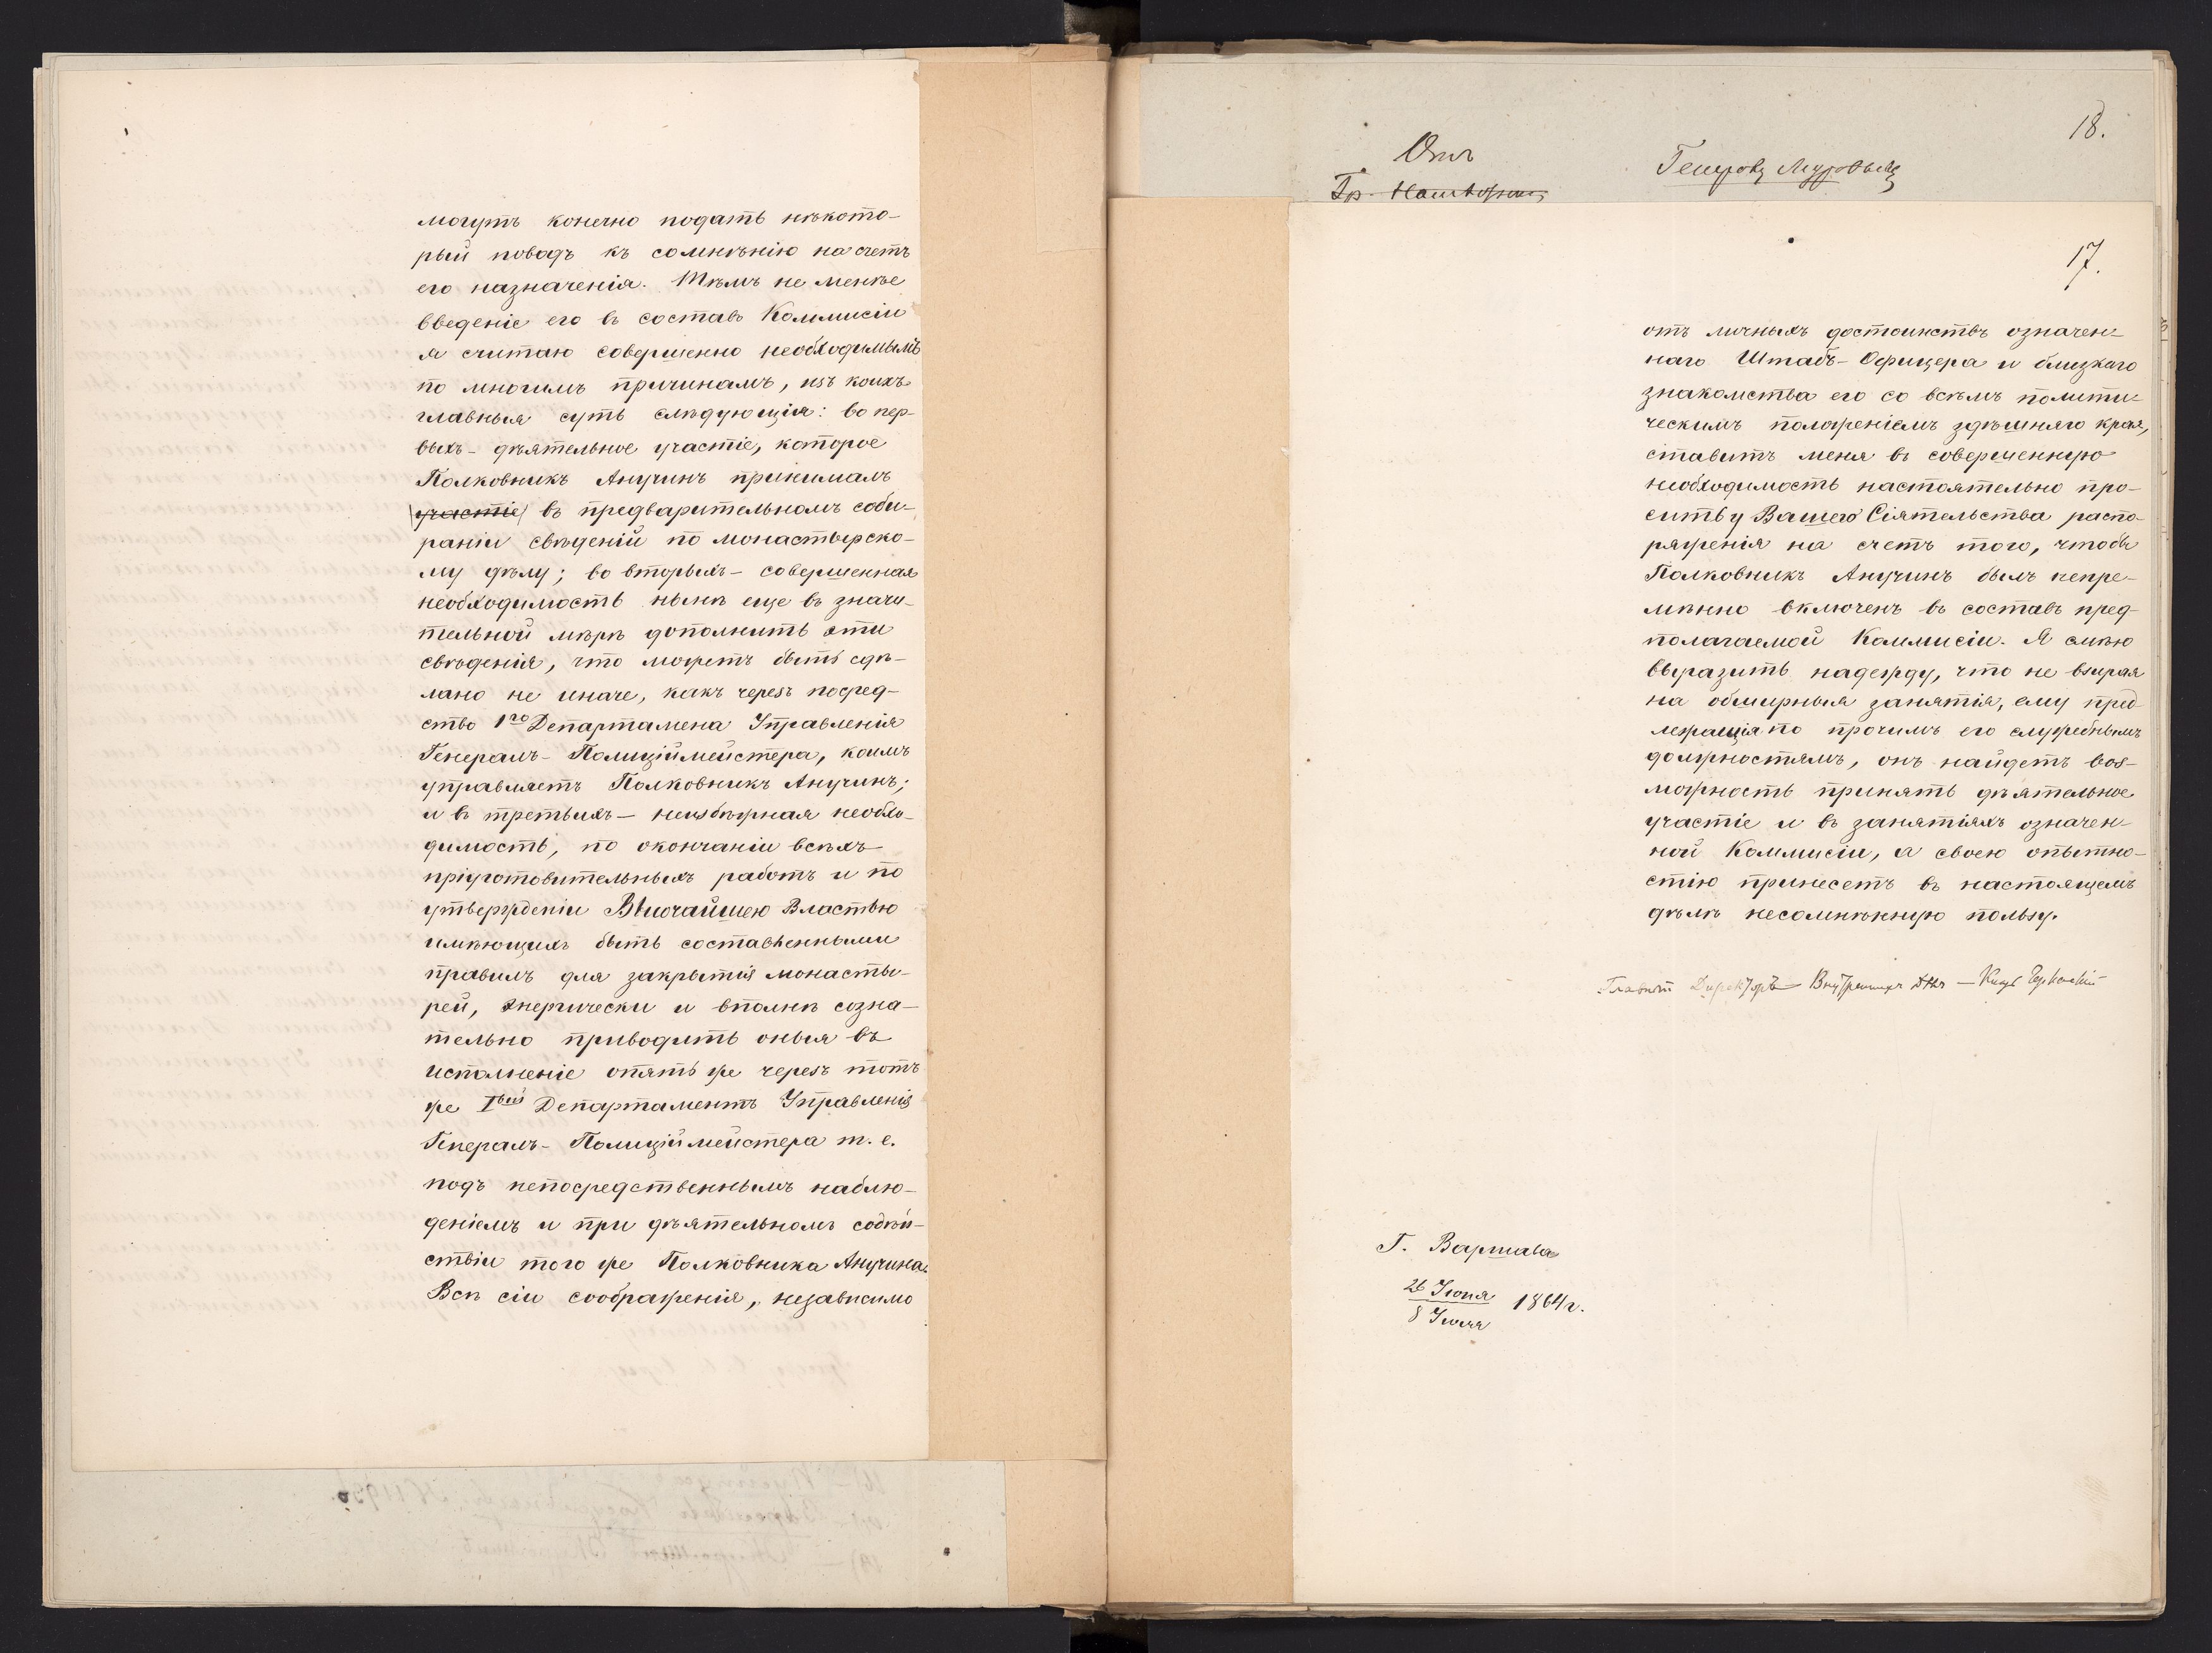 могутъ конечно подать нѣкото-
рый поводъ къ сомнѣнію на счетъ
его назначенія. Тѣмъ не менѣе
введеніе его въ составъ Коммисіи
я считаю совершенно необходимымъ
по многимъ причинамъ, изъ коихъ
главныя суть слѣдующія: во пер-
выхъ - дѣятельное участіе, которое
Полковникъ Анучинъ принималъ
участіе въ предварительномъ соби-
раніи свѣденій по монастырско-
му дѣлу; во вторыхъ - совершенная
необходимость нынѣ еще въ значи-
тельной мѣрѣ дополнить эти
свѣденія, что можетъ быть сдѣ-
лано не иначе, какъ черезъ посред-
ство 1го Департамена Управленія
Генералъ-Полиціймейстера, коимъ
управляетъ Полковникъ Анучинъ;
и въ третьихъ - неизбѣжная необхо-
димость, по окончаніи всѣхъ
пріуготовительныхъ работъ и по
утвержденіи Высочайшею Властью
имѣющихъ быть составленными
правилъ для закрытія монасты-
рей, энергически и вполнѣ созна-
тельно приводить оныя въ
исполненіе опять же черезъ тотъ
же Iвый Департаментъ Управленія
Генералъ-Полиціймейстера т. е.
подъ непосредственнымъ наблю-
деніемъ и при дѣятельномъ содѣй-
ствіи того же Полковника Анучина.
Всѣ сіи соображенія, независимо
18.
Гр.
17.
отъ личныхъ достоинствъ означен-
наго Штабъ-Офицера и близкаго
знакомства его со всѣмъ полити-
ческимъ положеніемъ здѣшняго края,
ставитъ меня въ совершенную
необходимость настоятельно про-
сить у Вашего Сіятельства распо-
ряженія на счетъ того, чтобы
Полковникъ Анучинъ былъ непре-
мѣнно включенъ въ составъ пред-
полагаемой Коммисіи. Я смѣю
выразить надежду, что не взирая
на обширныя занятія, ему пред
лежащія по прочимъ его служебнымъ
должностямъ, онъ найдетъ воз-
можность принять дѣятельное
участіе и въ занятіяхъ означен-
ной Коммисіи, а своею опытно-
стію принесетъ въ настоящемъ
дѣлѣ несомнѣнную пользу.
Главный Директоръ Внутреннихъ Дѣлъ - Князь Черкасскій
Г. Варшава
26 Іюня
8 Іюля 1864 г.